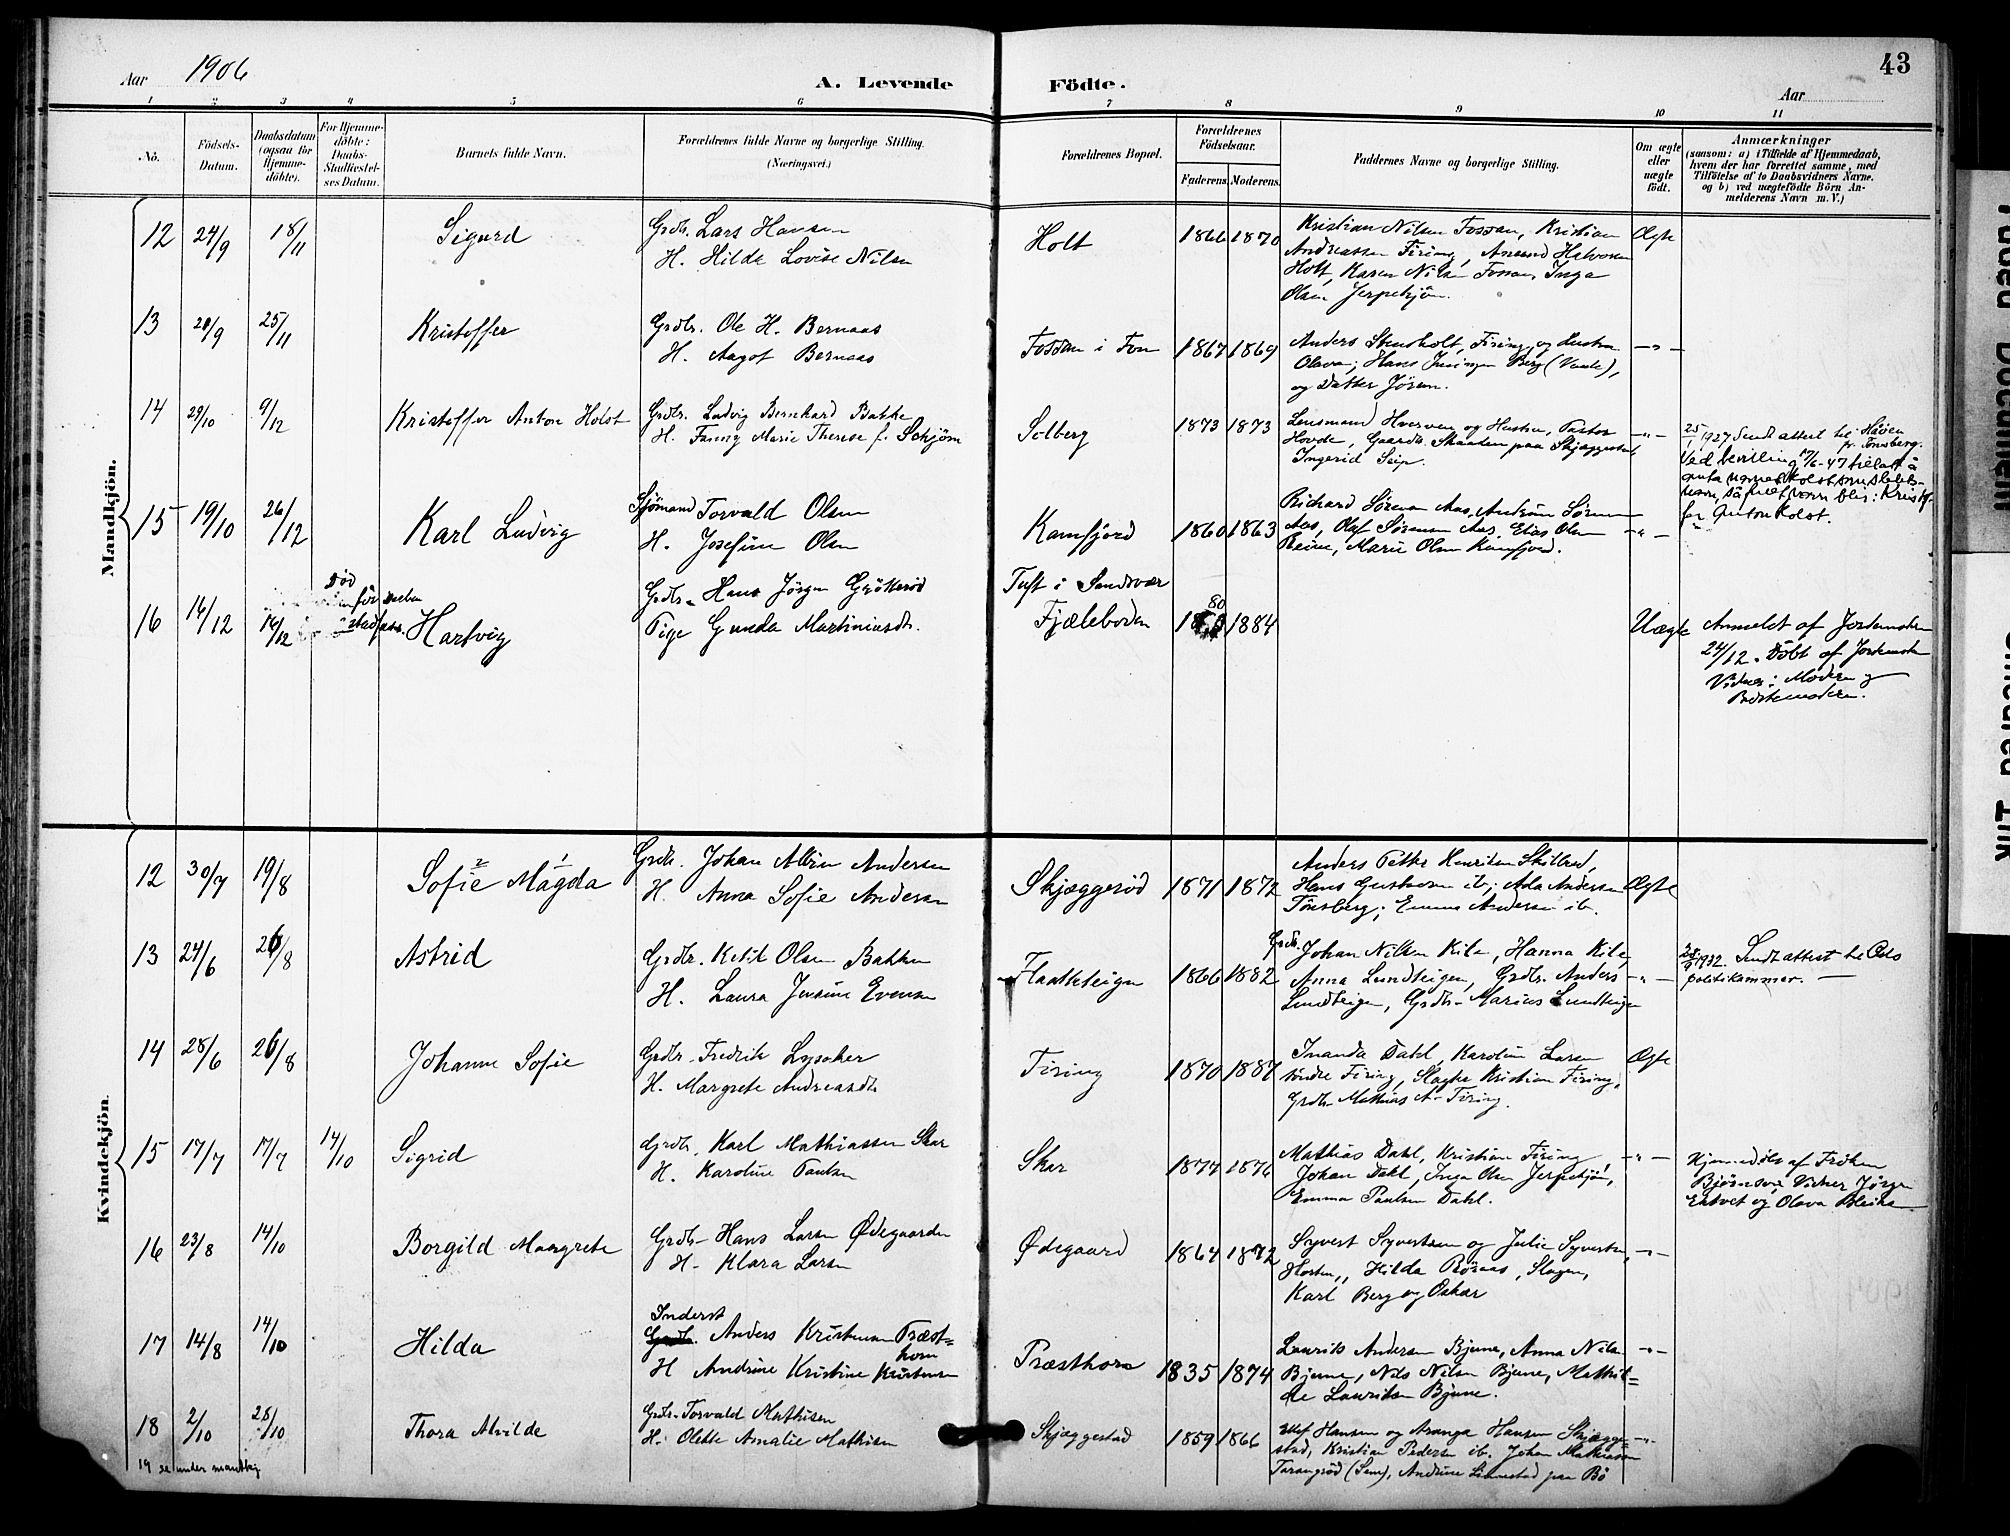 Aar 1906
A. Levende Födte.
43
Aar
1 2 3 4 5 6 7 8 9 10 11
No.
Födsels-Datum.
Daabsdatum (ogsaa för Hjemmedöbte).
For Hjemmedöbte: Daabs-Stadfæstelses Datum.
Barnets fulde Navn.
Forældrenes fulde Navne og borgerlige Stilling.
(Næringsvei.)
Forældrenes Bopæl.
Forældrenes Födselsaar.
Faderens. Moderens.
Faddernes Navne og borgerlige Stilling.
Om ægte eller uægte födt.
Anmærkninger
(saasom: a) i Tilfælde af Hjemmedaab, hvem der har forrettet samme, med Tilföielse af to Daabsvidners Navne, og b) ved uægtefödte Börn Anmelderens Navn m. V.)
Mandkjön.
12 24/9 18/11 Sigurd
Grdbr. Lars Hansen
H. Hilda Lovise Nilsen
Holt 1866 1870
Kristian Nilsen Fossan, Kristian
Andreassen Firing, Amund Halvorsen
Holt, Karen Nilsen Fossan, Inga
Olsen Jerpekjön.
Ægte
13 20/9 25/11 Kristoffer
Grdbr. Ole H. Bernaas
H. Aagot Bernaas
Fossan i Fon 1867 1869
Anders Stensholt, Firing, og Hustru
Olava; Hans Iversen Berg (Vaale),
og Datter Jörun.
14 29/10 9/12 Kristoffer Anton Holst
Grdbr. Ludvig Bernhard Bakke
H. Fanny Marie Therese f. Schjöm
Solberg 1873 1873
Lensmand Hverven og Hustru, Pastor
Hovde, Gaardb. Skaaden paa Skjæggestad,
Ingerid Seip.
25/1 1927 Sendt attest til Håøen
pr. Tønsberg.
Ved bevilling 17/6-47 tillatt å
anta navnet Kolst som slekts-
navn, så fullt navn blir: Kristof-
fer Anton Kolst.
15 19/10 26/12 Karl Ludvig
Sjömand Torvald Olsen
H. Josefine Olsen
Kamfjord 1860 1863
Richard Sörensen Aas, Andrine Sörensen
Aas, Olaf Sörensen Aas, Elias Olsen
Reine, Marie Olsen Kamfjord.
16 14/12 14/12 Död før Daaben stadfæs. Hartvig
Grdbr. Hans Jörgen Gjötterød
Pige Gunda Martiniusdtr.
Tuft i Sandsvær
Fjæleboden 1880 1884
Uægte
Anmeldt af Jordemoderen
24/12. Döbt af Jordemoderen
Vidner: Moderen og
Bedstemoderen.
Kvindekjön.
12 30/7 19/8 Sofie Magda
2 1
Grdbr. Johan Albin Andersen
H. Anna Sofie Andersen
Skjæggerød 1871 1872
Anders Petter Henriksen Skilbred,
Hans Gustavsen ib.; Ada Andersen
Tönsberg; Emma Andersen ib.
Ægte
13 24/6 26/8 Astrid
Grdbr. Ketil Olsen Bakken
H. Laura Jensine Evensen
Flaatteteigen 1866 1882
Grdb. Johan Nilsen Kile, Hanna Kile,
Anna Lundteigen, Grdbr. Anders
Lundteigen, Grdbr. Marius Lundteigen
28/9 1932. Sendt attest til Oslo
politikammer.
14 28/6 26/8 Johanne Sofie
Grdbr. Fredrik Lysaker
H. Margrete Andreasdtr
Firing 1870 1887
Inanda Dahl, Karoline Larsen
söndre Firing, Slagter Kristian Firing,
Grdbr. Mathias A. Firing.
Ægte
15 17/7 17/7 14/10 Sigrid
Grdbr. Karl Mathiassen Skar
H. Karoline Paulsen
Skar 1877 1876
Mathias Dahl, Kristian Firing
Johan Dahl, Inga Olsen Jerpekjön,
Emma Paulsen Dahl.
Hjemmedöbt af Fröken
Björnson, Vidner Jörgen
Ektvet og Olava Bleika
16 23/8 14/10 Borgild Margrete
Grdbr. Hans Larsen Ødegaarden
H. Klara Larsen
Ødegaard 1864 1872
Syvert Syvertsen og Julie Syvertsen,
Horten, Hilda Röraas, Slagen,
Karl Berg og Oskar
17 14/8 14/10 Hilda
Inderst
Grdb. Anders Kristensen Præst-
horn
H Andrine Kristine Kristensen
Præsthorn 1835 1874
Laurits Andersen Bjerne, Anna Nilsen
Bjerne, Nils Nilsen Bjerne, Mathil-
de Lauritsen Bjerne.
18 2/10 28/10 Thora Alvilde
Grdbr. Torvald Mathisen
H. Olette Amalie Mathisen
Skjæggestad 1859 1866
Ellef Hansen og Aranga Hansen Skjægge-
stad, Kristian Pedersen ib. Johan Mathiesen
Tarangröd (Sem), Andrine Linnestad paa Bö
19 se under mandkj.